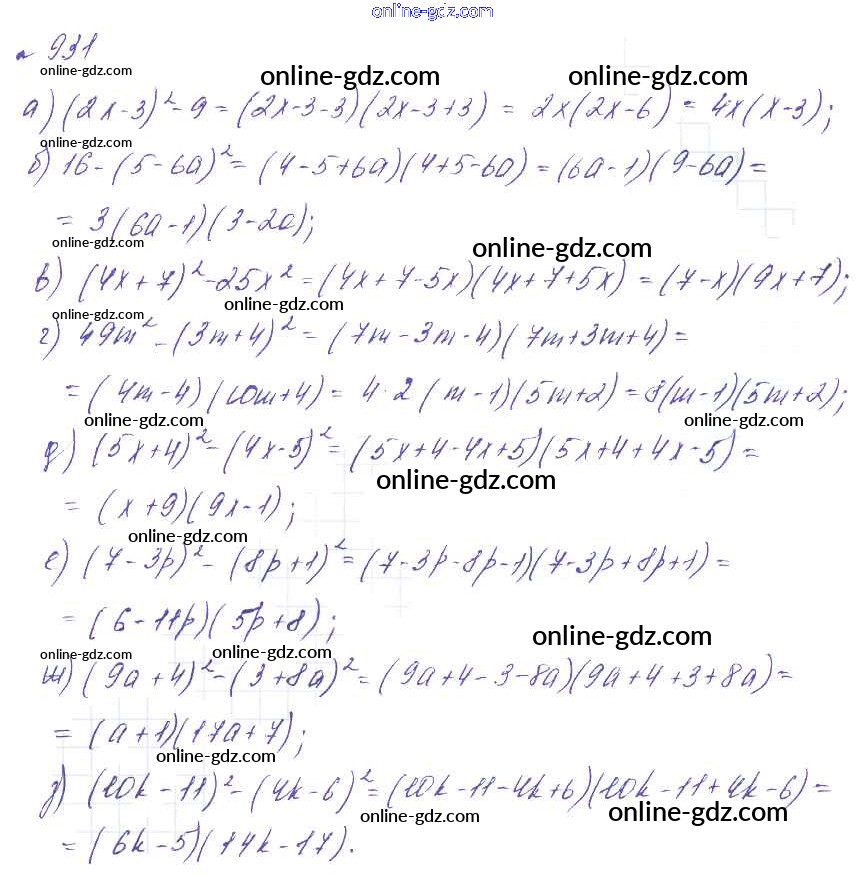 online-gdz.com
№ 931
online-gdz.com
online-gdz.com online-gdz.com
а) (2x-3)²-9 = (2x-3-3)(2x-3+3) = 2x(2x-6) = 4x(x-3);
online-gdz.com
б) 16-(5-6a)² = (4-5+6a)(4+5-6a) = (6a-1)(9-6a) =
= 3(6a-1)(3-2a);
online-gdz.com
online-gdz.com
в) (4x+7)²-25x² = (4x+7-5x)(4x+7+5x) = (7-x)(9x+7);
online-gdz.com
г) 49m²-(3m+4)² = (7m-3m-4)(7m+3m+4) =
= (4m-4)(10m+4) = 4·2(m-1)(5m+2) = 8(m-1)(5m+2);
online-gdz.com online-gdz.com
д) (5x+4)²-(4x-5)² = (5x+4-4x+5)(5x+4+4x-5) =
online-gdz.com
= (x+9)(9x-1);
online-gdz.com
е) (7-3p)²-(8p+1)² = (7-3p-8p-1)(7-3p+8p+1) =
= (6-11p)(5p+8);
online-gdz.com
online-gdz.com online-gdz.com
ж) (9a+4)²-(3+8a)² = (9a+4-3-8a)(9a+4+3+8a) =
= (a+1)(17a+7);
online-gdz.com
з) (10k-11)²-(4k-6)² = (10k-11-4k+6)(10k-11+4k-6) =
online-gdz.com online-gdz.com
= (6k-5)(14k-17).